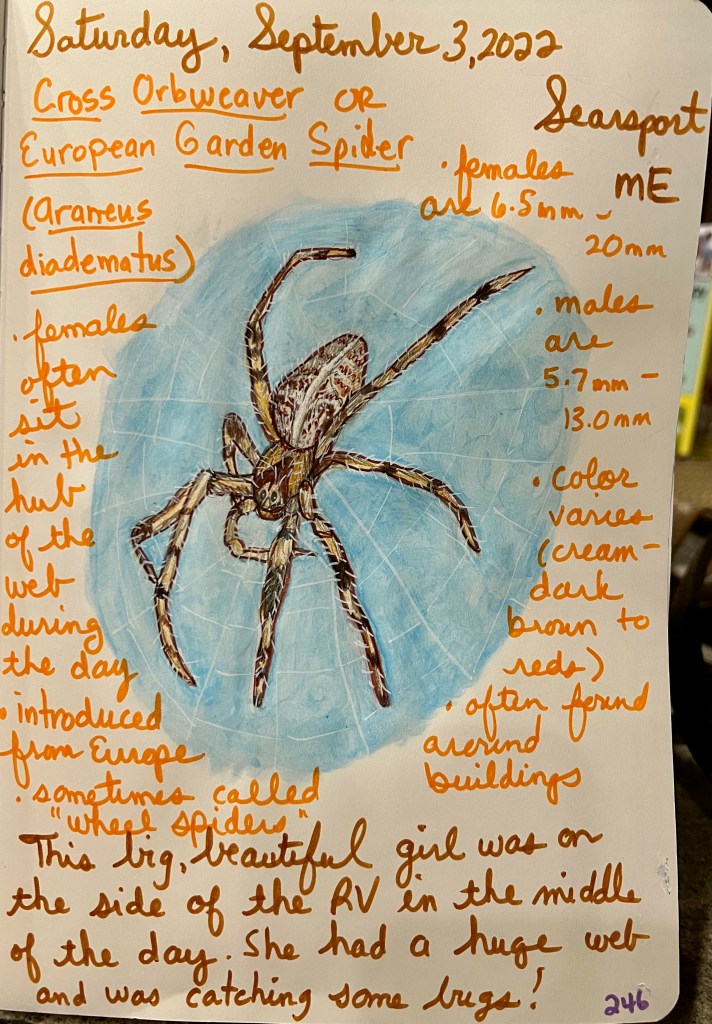 Saturday, September 3, 2022
Searsport
ME
Cross Orbweaver OR
European Garden Spider
(Araneus
diadematus)
· females
often
sit
in the
hub
of the
web
during
the day
· introduced
from Europe
· sometimes called
"wheel spiders"
· females
are 6.5mm -
20mm
· males
are
5.7mm -
13.0mm
· color
varies
(cream-
dark
brown to
reds)
· often found
around
buildings
This big, beautiful girl was on
the side of the RV in the middle
of the day. She had a huge web
and was catching some bugs!
246